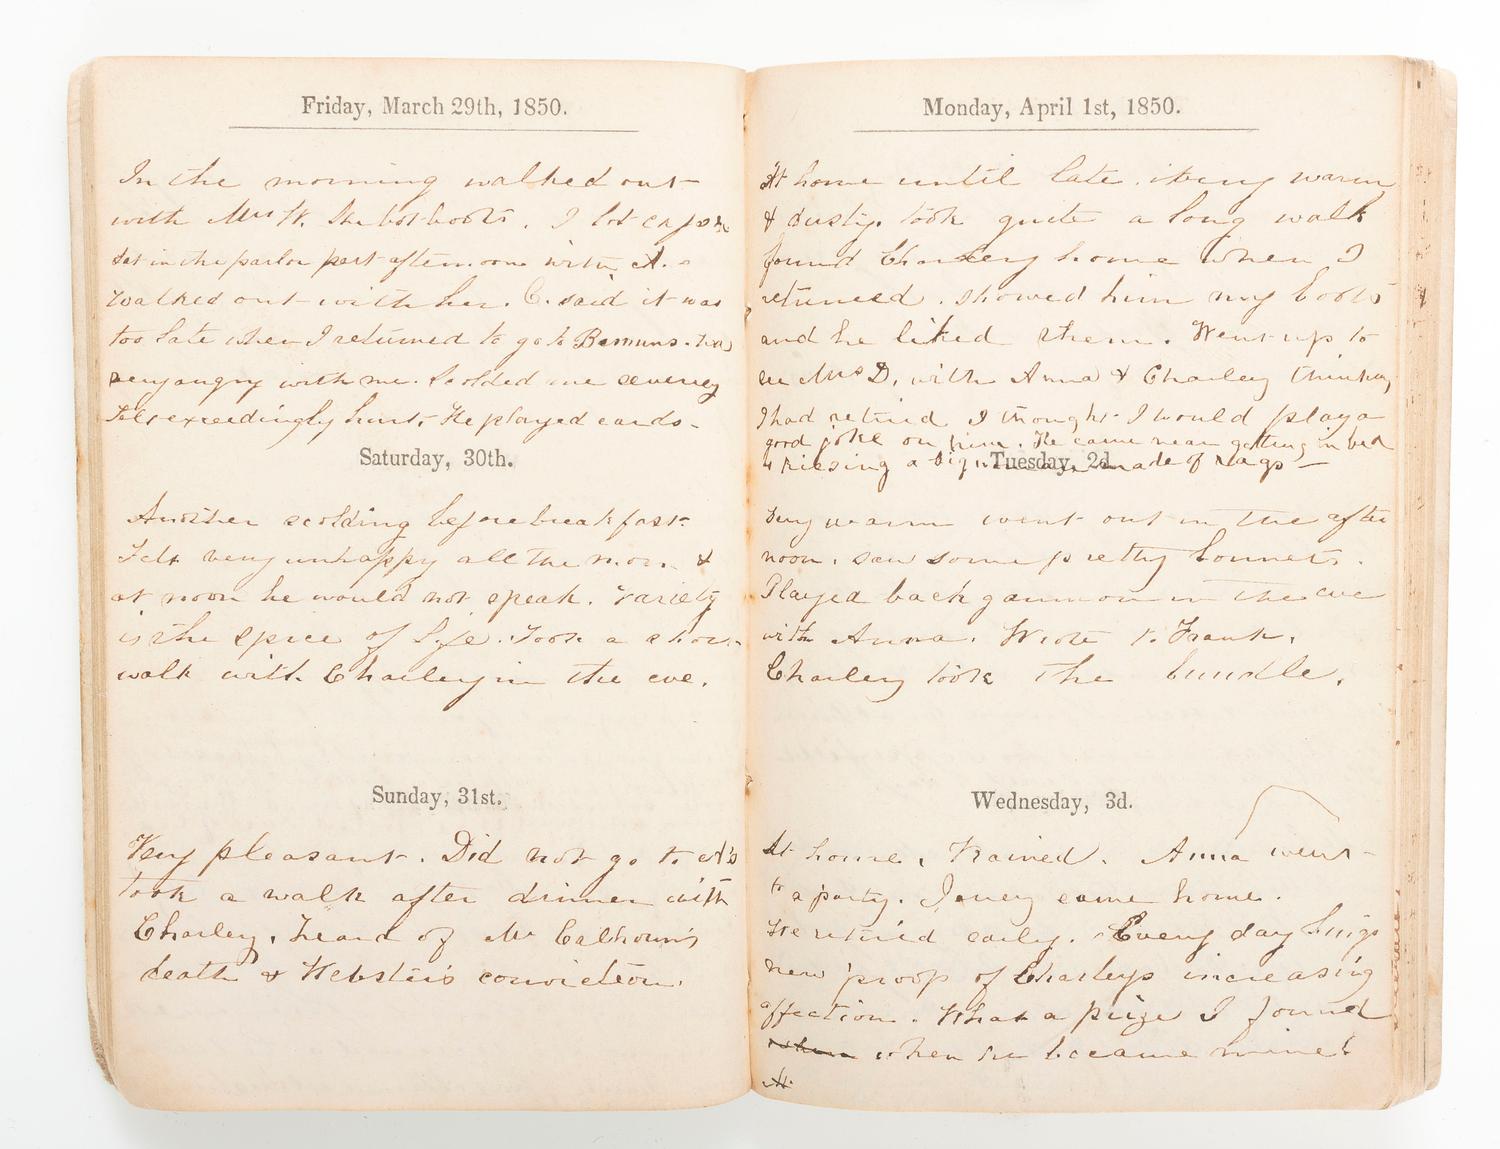 Friday, March 29th, 1850.
In the morning walked out
with Mrs W. She bot boots. I bot
Sat in the parlor part afternoon with A.
walked out with her. C. said it was
too late when I returned to go to Bemuns. was
very angry with me. Scolded me severely
Felt exceedingly hurt. He played cards.
Saturday, 30th.
Another scolding before breakfast.
Felt very unhappy all the morn. &
at noon he would not speak. Variety
is the spice of life. Took a short
walk with Charley in the eve.
Sunday, 31st.
Very pleasant. Did not go to A's
took a walk after dinner with
Charley. Heard of Mr Calhoun's
death & Webster's conviction.
Monday, April 1st, 1850.
At home until late. it being warm
& dusty. took quite a long walk
found Charley home when I
returned. showed him my boots
and he liked them. Went up to
see Mrs D. with Anna & Charley thinking
I had retired I thought I would play a
good joke on him. He came near getting in bed
& kissing a made of rags —
Tuesday, 2d.
Very warm went out in the after
noon. saw some pretty bonnets.
Played back gammon in the eve
with Anna. Wrote to Frank.
Charley took the bundle.
Wednesday, 3d.
At home. Rained. Anna went
to a party. Jenny came home.
We retired early. Every day brings
new proof of Charleys increasing
affection. What a prize I found
when he became mine!